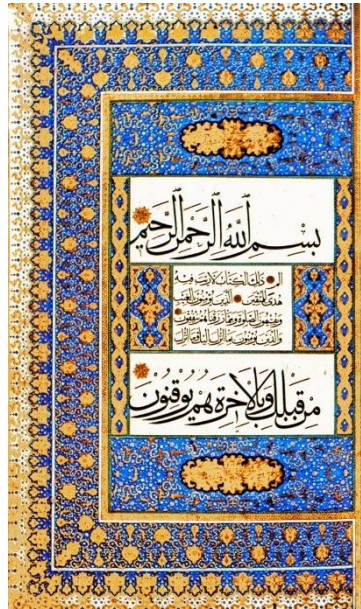 بِسْمِ ٱللَّهِ ٱلرَّحْمٰنِ ٱلرَّحِيمِ
الم ذلك الكتاب لا ريب فيه
هدى للمتقين الذين يؤمنون بالغيب
ويقيمون الصلوة ومما رزقناهم ينفقون
والذين يؤمنون بما انزل اليك وما انزل
مِن قَبْلِكَ وَبِالْاٰخِرَةِ هُمْ يُوقِنُونَ